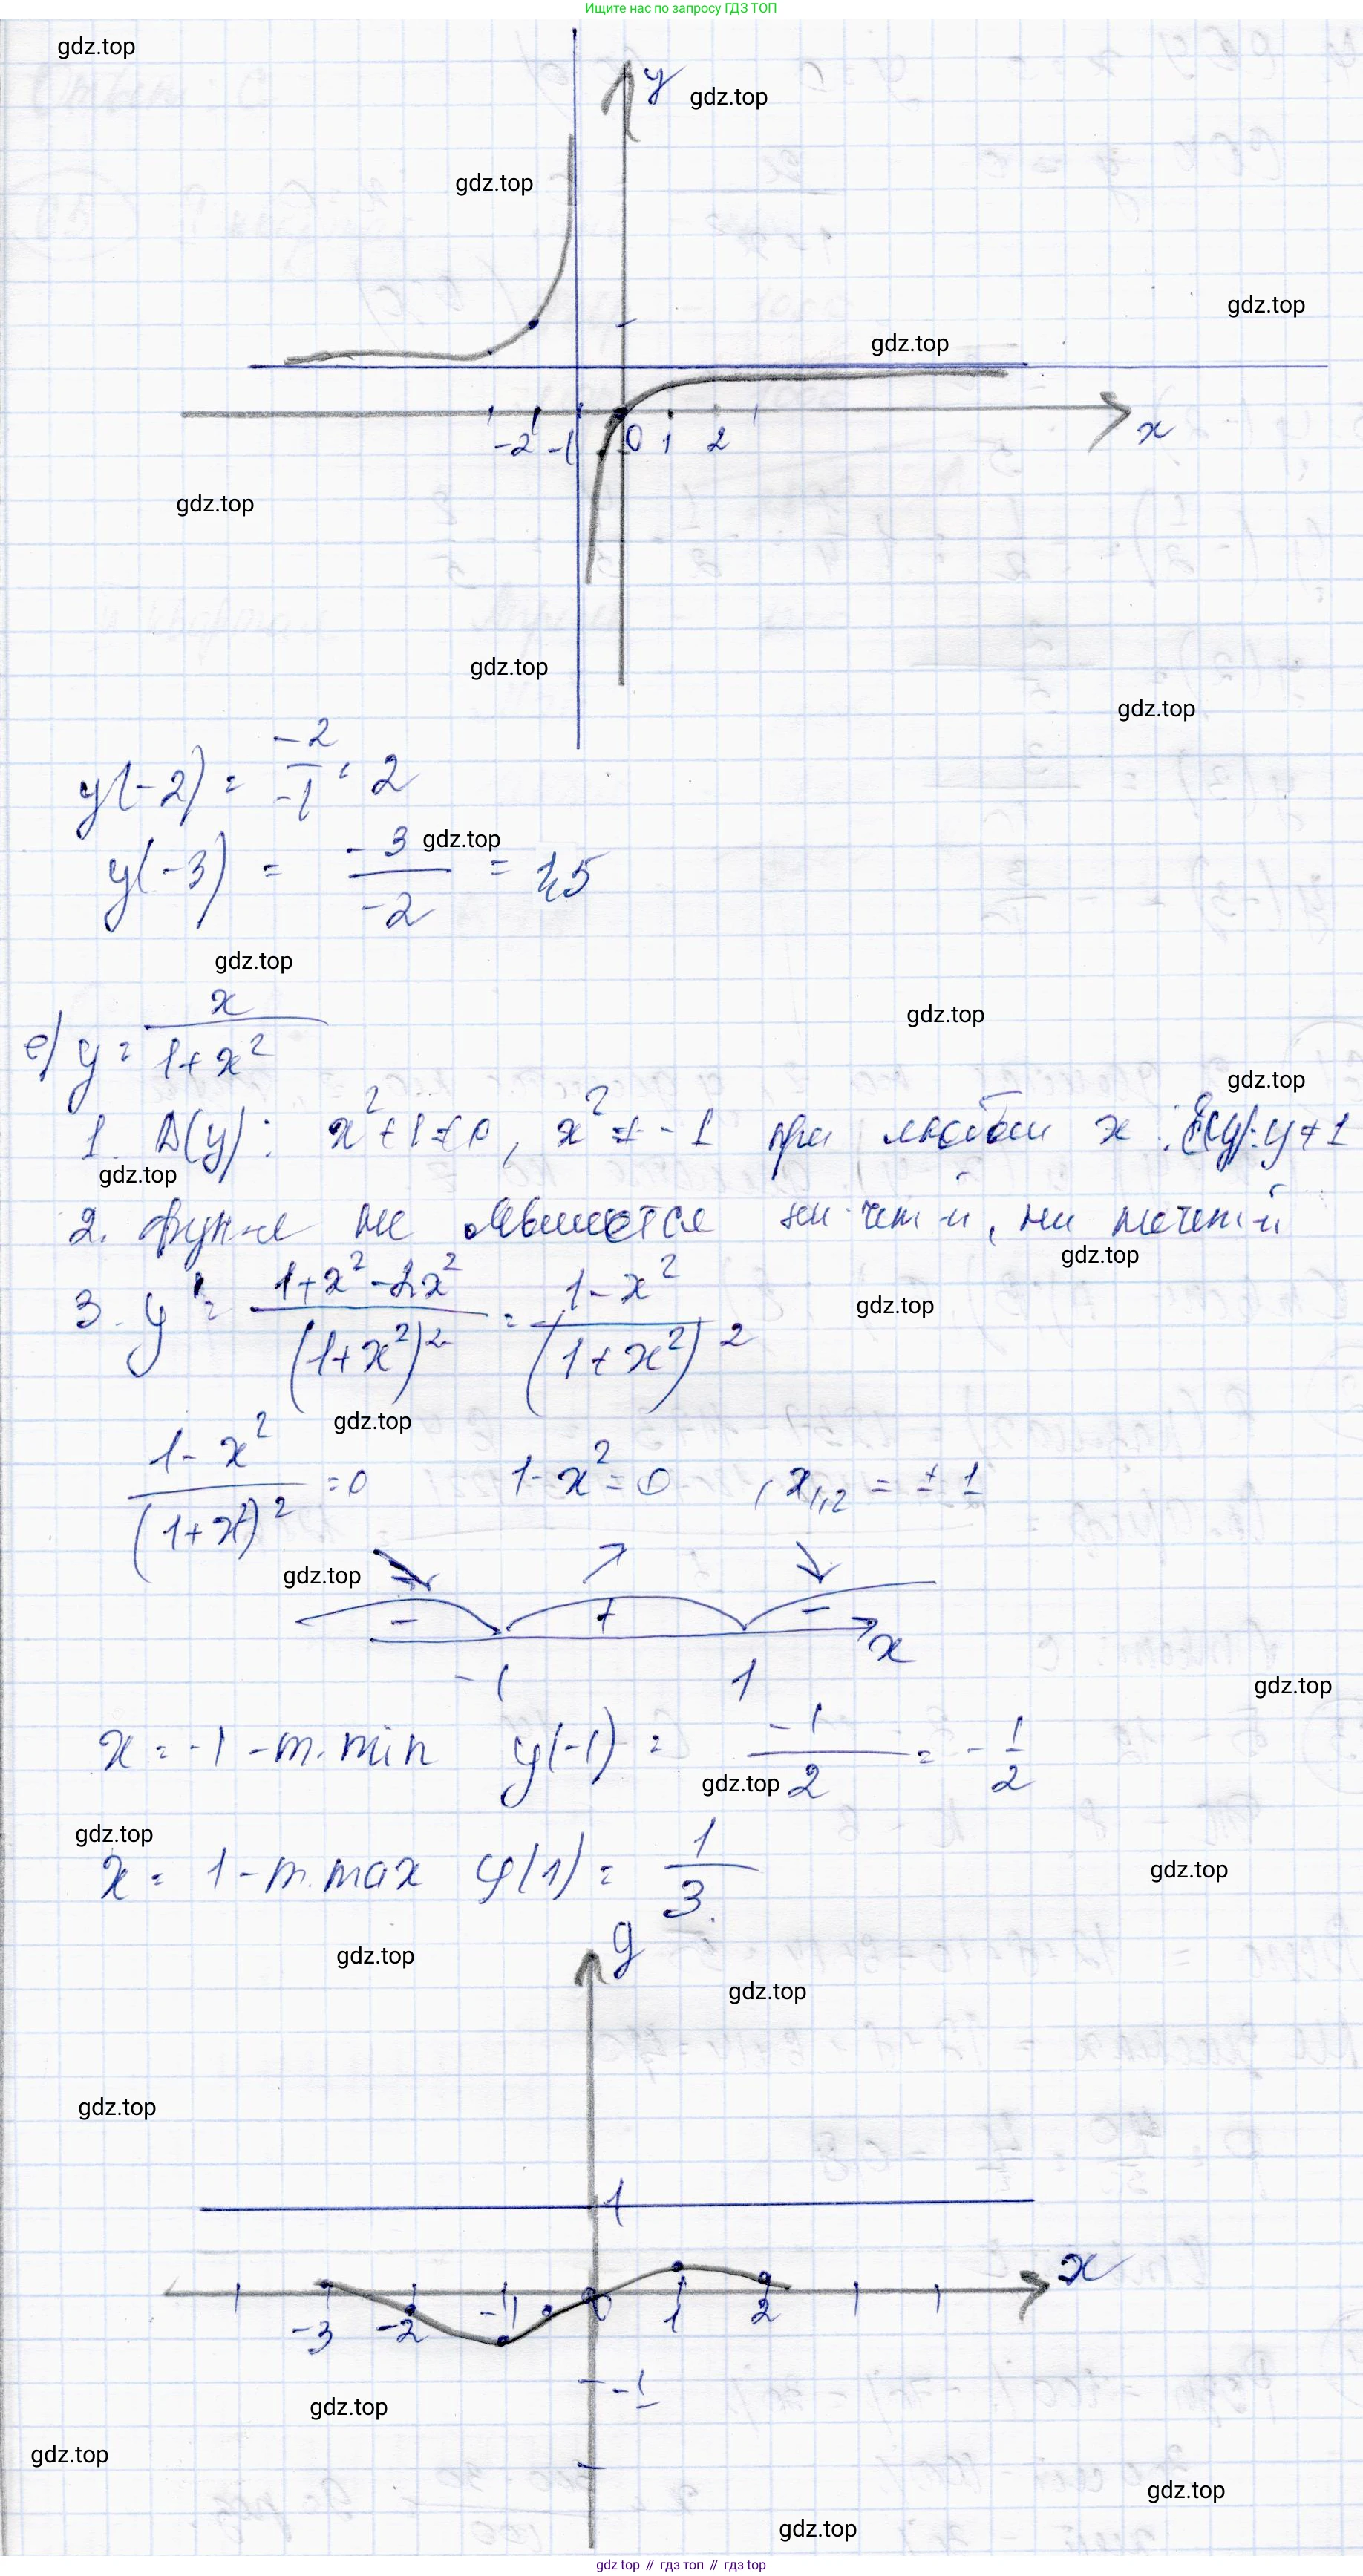 Ищите нас по запросу ГДЗ ТОП
gdz.top
y
gdz.top
gdz.top
gdz.top
gdz.top
-2 -1 0 1 2
x
gdz.top
gdz.top
gdz.top
y(-2) = -2/-1 = 2
gdz.top
y(-3) = -3/-2 = 1,5
gdz.top
gdz.top
е) y = x/(1+x²)
gdz.top
1. D(y): x²+1≠0, x² ≠ -1 при любом x. E(y): y≠1
gdz.top
2. фун-я не является ни чет-й, ни нечет-й
gdz.top
3. y' = (1+x²-2x²)/(1+x²)² = (1-x²)/(1+x²)²
gdz.top
gdz.top
(1-x²)/(1+x²)² = 0 1-x²=0, x₁,₂ = ±1
gdz.top
- + -
x
-1 1
gdz.top
x = -1 - т. min y(-1) = -1/2 = -1/2
gdz.top
gdz.top
x = 1 - т. max y(1) = 1/3
gdz.top
y
gdz.top
gdz.top
gdz.top
1
x
-3 -2 -1 0 1 2
-1
gdz.top
gdz.top
gdz.top
gdz.top
gdz top // гдз топ // гдз top